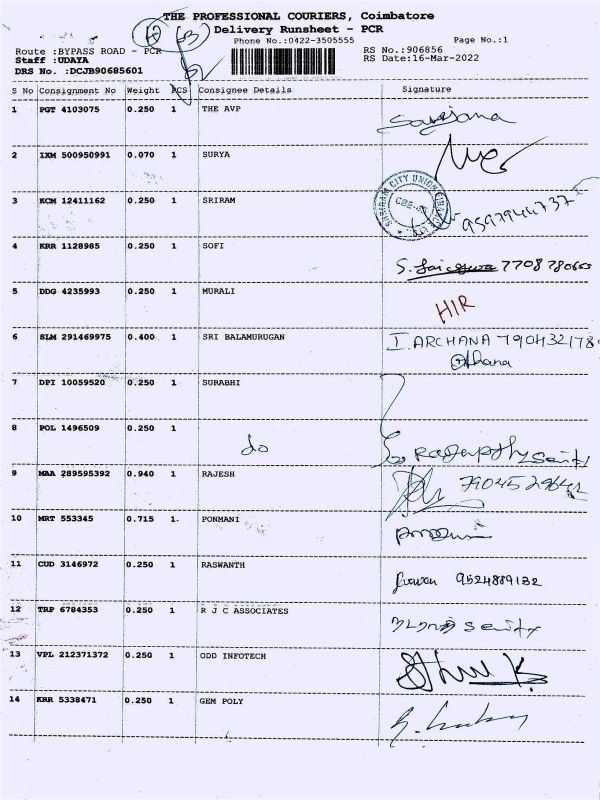 THE PROFESSIONAL COURIERS, Coimbatore
Delivery Runsheet - PCR
Phone No.:0422-3505555 Page No.:1
Route :BYPASS ROAD - PCR RS No.:906856
Staff :UDAYA RS Date:16-Mar-2022
DRS No. :DCJB90685601
S No Consignment No Weight PCS Consignee Details Signature
1 PGT 4103075 0.250 1 THE AVP
2 IXM 500950991 0.070 1 SURYA
SHRIRAM CITY UNION FINANCE LTD.
3 KCM 12411162 0.250 1 SRIRAM 9597944737
4 KRR 1128985 0.250 1 SOFI 7708780663
5 DDG 4235993 0.250 1 MURALI
HIR
6 SLM 291469975 0.400 1 SRI BALAMURUGAN I. ARCHANA 790432178
7 DPI 10059520 0.250 1 SURABHI
8 POL 1496509 0.250 1
do
9 MAA 289595392 0.940 1 RAJESH
10 MRT 553345 0.715 1 PONMANI
11 CUD 3146972 0.250 1 RASWANTH 9524889132
12 TRP 6784353 0.250 1 R J C ASSOCIATES
13 VPL 212371372 0.250 1 ODD INFOTECH
14 KRR 5338471 0.250 1 GEM POLY